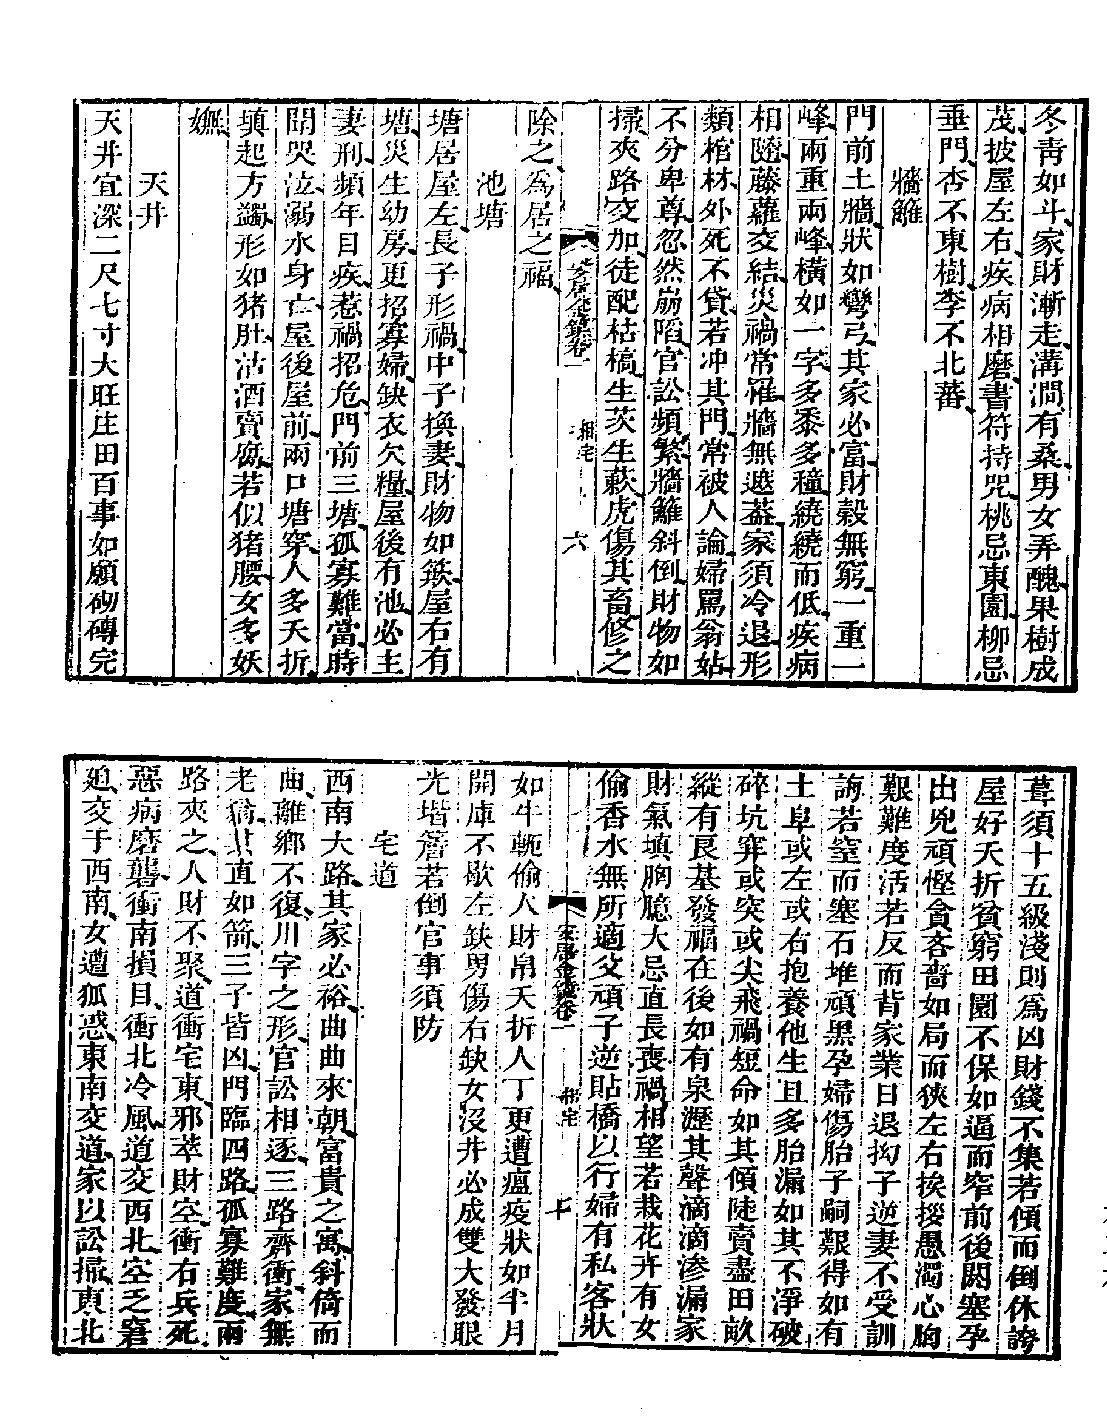 冬青如斗家財漸走溝澗有桑男女弄醜果樹成
茂披屋左右疾病相磨書符持咒桃忌東園柳忌
垂門杏不東樹李不北蕃
牆籬
門前土牆狀如彎弓其家必富財穀無窮一重一
峰兩重兩峰橫如一字多黍多穜繞繞而低疾病
相隨藤蘿交結災禍常罹牆無遮葢家須冷退形
類棺材外死不貸若冲其門常被人論婦罵翁姑
不分卑尊忽然崩陷官訟頻繁牆籬斜倒財物如
掃夾路交加徒配枯槁生茨生蔌虎傷其畜修之
安居金鏡卷一
相宅
六
除之為居之福
池塘
塘居屋左長子形禍中子換妻財物如鉄屋右有
塘災生幼房更招寡婦缺衣欠糧屋後有池必主
妻刑頻年目疾惹禍招危門前三塘孤寡難當時
聞哭泣溺水身亡屋後屋前兩口塘穿人多夭折
填起方蠲形如猪肚沽酒賣腐若似猪腰女多妖
嫵
天井
天井宜深二尺七寸大旺庄田百事如願砌磚完
葺須十五級淺則為凶財錢不集若傾而倒休誇
屋好夭折貧窮田園不保如逼而窄前後閼塞孕
出兇頑慳貪吝嗇如局而狹左右挨拶愚濁心胸
艱難度活若反而背家業日退拗子逆妻不受訓
誨若窒而塞石堆頑黑孕婦傷胎子嗣艱得如有
土阜或左或右抱養他生且多胎漏如其不淨破
碎坑穽或突或尖飛禍短命如其傾陡賣盡田畝
縱有良基發福在後如有泉瀝其聲滴滴滲漏家
財氣填胸臆大忌直長喪禍相望若栽花卉有女
偷香水無所適父頑子逆貼橋以行婦有私客狀
安居金鏡卷一
相宅
七
如牛軛偷人財帛夭折人丁更遭瘟疫狀如半月
開庫不歇左缺男傷右缺女沒井必成雙大發眼
光堦簷若倒官事須防
宅道
西南大路其家必裕曲曲來朝富貴之寓斜倚而
曲離鄉不復川字之形官訟相逐三路齊衝家無
老翁直如箭三子皆凶門臨四路孤寡難度兩
路夾之人財不聚道衝宅東邪萃財空衝右兵死
惡病磨礱衝南損目衝北冷風道交西北空乏窘
廹交于西南女遭狐惑東南交道家以訟掃東北